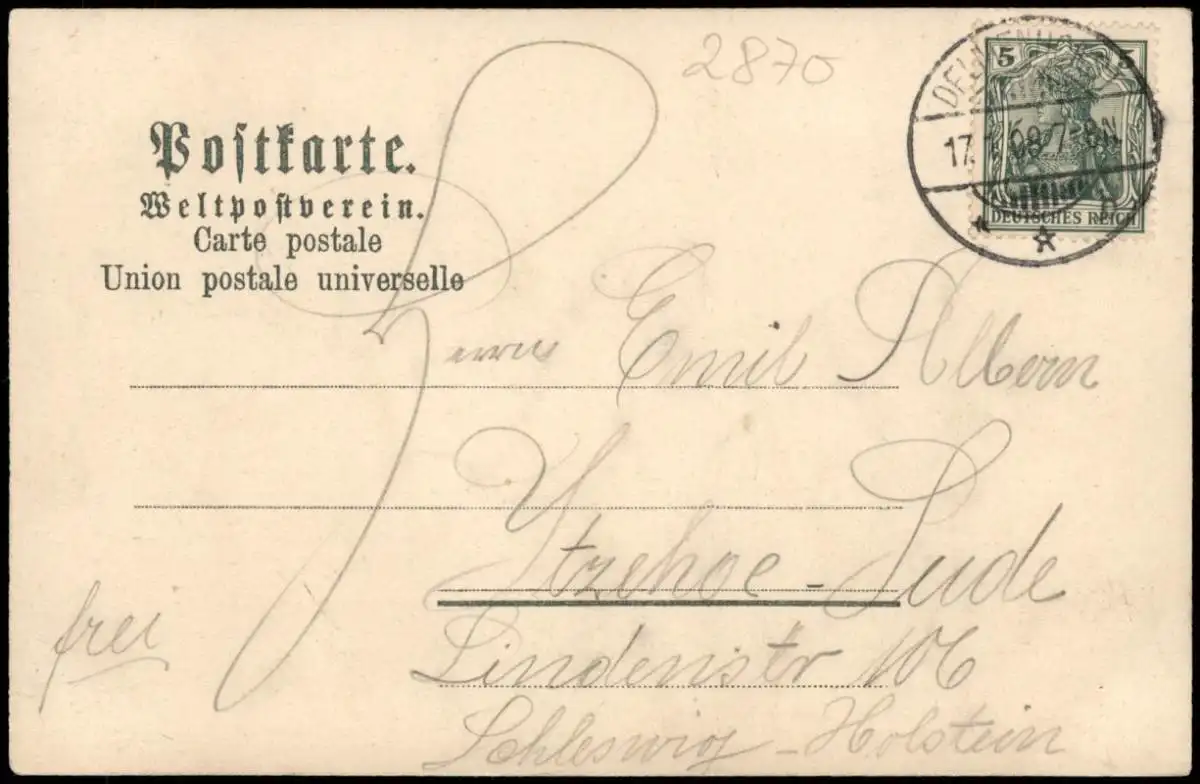 2870
Postkarte.
Weltpostverein.
Carte postale
Union postale universelle
5 5
DEUTSCHES REICH
DELMENHORST
17. 08 7-8N
Herrn Emil Albern
Itzehoe-Sude
Lindenstr 106
Schleswig-Holstein
frei